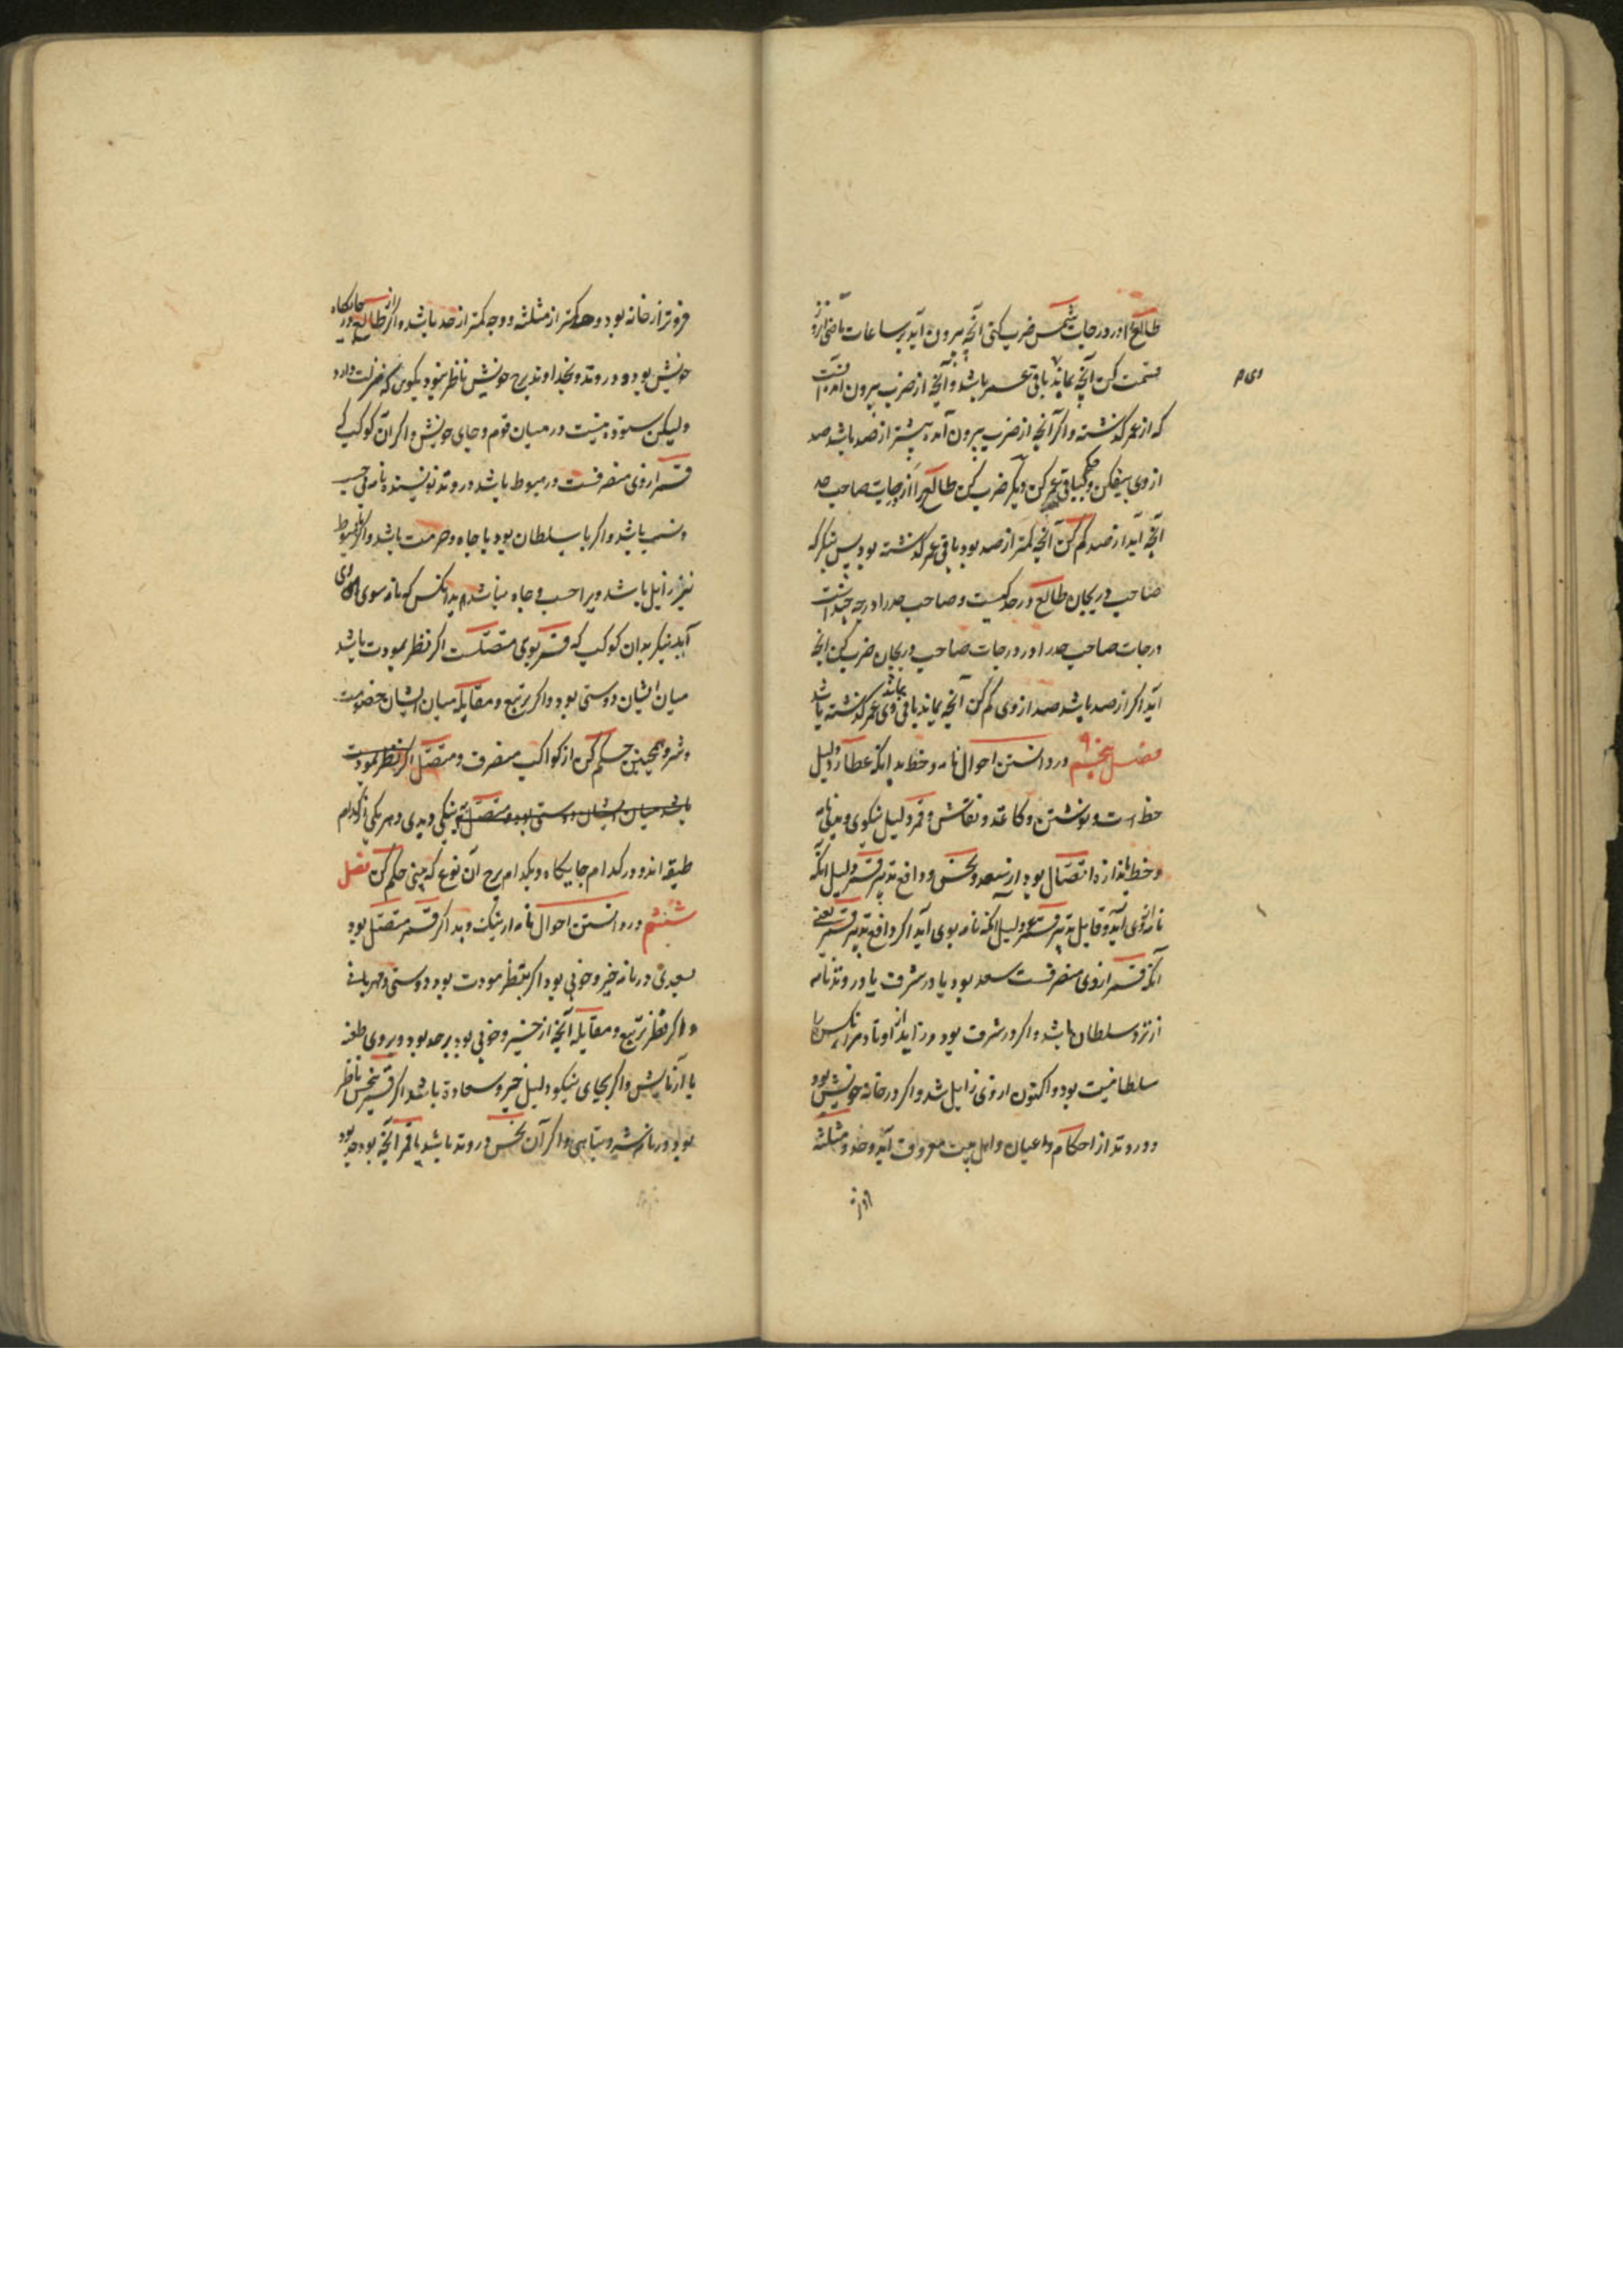 طالع را در درجات شمس ضرب کنی آنچه بیرون آید بر ساعات ماضی از روز
قسمت کن آنچه بماند باقی عمر باشد و آنچه از ضرب بیرون آمده آنست
که از عمر گذشته و اگر آنچه از ضرب بیرون آمده بیشتر از صد باشد صد
از وی بیفکن و باقی عمر کن دیگر ضرب کن طالع را در درجات صاحب حد
آنچه آید از صد کم کن آنچه کمتر از صد بود باقی عمر گذشته بود پس بنگر که
صاحب دریجان طالع در حد کیست و صاحب حد را درجه چند است
درجات صاحب حد را در درجات صاحب دریجان ضرب کن آنچه
آید اگر از صد باشد صد از وی کم کن آنچه بماند باقی وی عمر گذشته باشد
فصل پنجم در دانستن احوال نامه و خط بدانکه عطارد دلیل
خط است و نوشتن و کاغذ و نقاش و قمر دلیل نیکوی و بدی نامه
و خط باندازه اتصال بود از سعد و نحس و دافع تدبیر قمر دلیل آنکه
نامه از وی آید و قابل تدبیر قمر دلیل آنکه نامه بوی آید اگر دافع تدبیر قمر یعنی
آنکه قمر از وی منصرفست سعد بود یا در شرف یا در وتد نامه
از نزد سلطان باشد و اگر در شرف بود و زایل از اوتاد مر آنکس را
سلطانیت بود و اکنون از وی زایل شد و اگر در خانه خویش بود
و در وتد از احکام و اعیان و اهل بیت معروف آید و حد و مثلثه
فروتر از خانه بود و حد کمتر از مثلثه و وجه کمتر از حد باشد و اگر از طالع در جایگاه
خویش بود و در وتد و بخداوند برج خویش ناظر نبود بگوی که منزلت دارد
ولیکن ستوده نیست در میان قوم و جای خویش و اگر آن کوکب کی
قمر از وی منصرفست در هبوط باشد در وتد نویسنده نامه بی حسب
و نسب باشد و اگر با سلطان بود با جاه و حرمت باشد و اگر با هبوط
نیز زایل باشد ویرا حسب و جاه نباشد بدانکس که نامه سوی وی
آید بنگر بدان کوکب که قمر بوی متصلست اگر نظر بمودت باشد
میان ایشان دوستی بود و اگر تربیع و مقابله میان ایشان خصومت
و شر و همچنین حکم کن از کواکب منصرف و متصل اگر نظر بمودت
باشد میان ایشان دوستی بود و متصل به نیکی و بدی و هر یکی از کدام
طبقه اند و در کدام جایگاه و بکدام برج آن نوع که بینی حکم کن فصل
ششم در دانستن احوال نامه از نیک و بد اگر قمر متصل بود
بسعدی در نامه خیر و خوبی بود اگر بنظر مودت بود دوستی و مهربانی
و اگر نظر تربیع و مقابله آنچه از خیر و خوبی بود برحد بود و بروی طعنه
یا آزمایش و اگر بجای نیکو دلیل خیر و سعادة باشد اگر قمر بنحس ناظر
بود در نامه شر و تباهی و اگر آن نحس در وتد باشد با قمر آنچه بود حد بود